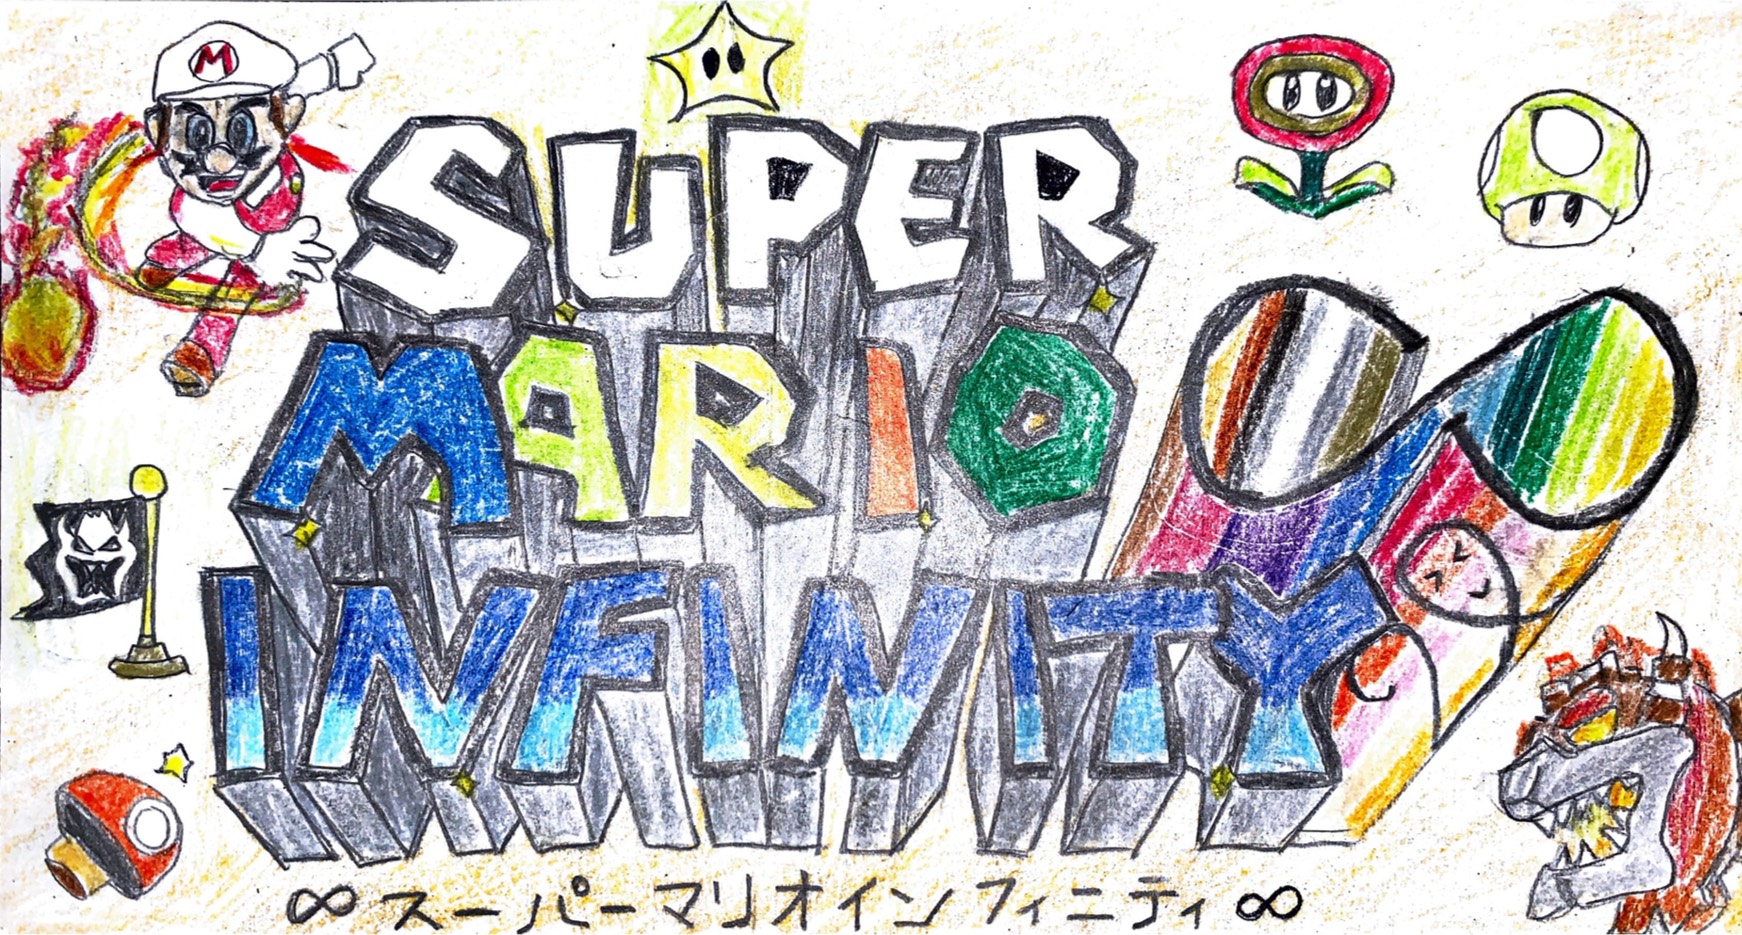 M
SUPER
MARIO
INFINITY
∞ スーパーマリオインフィニティ ∞